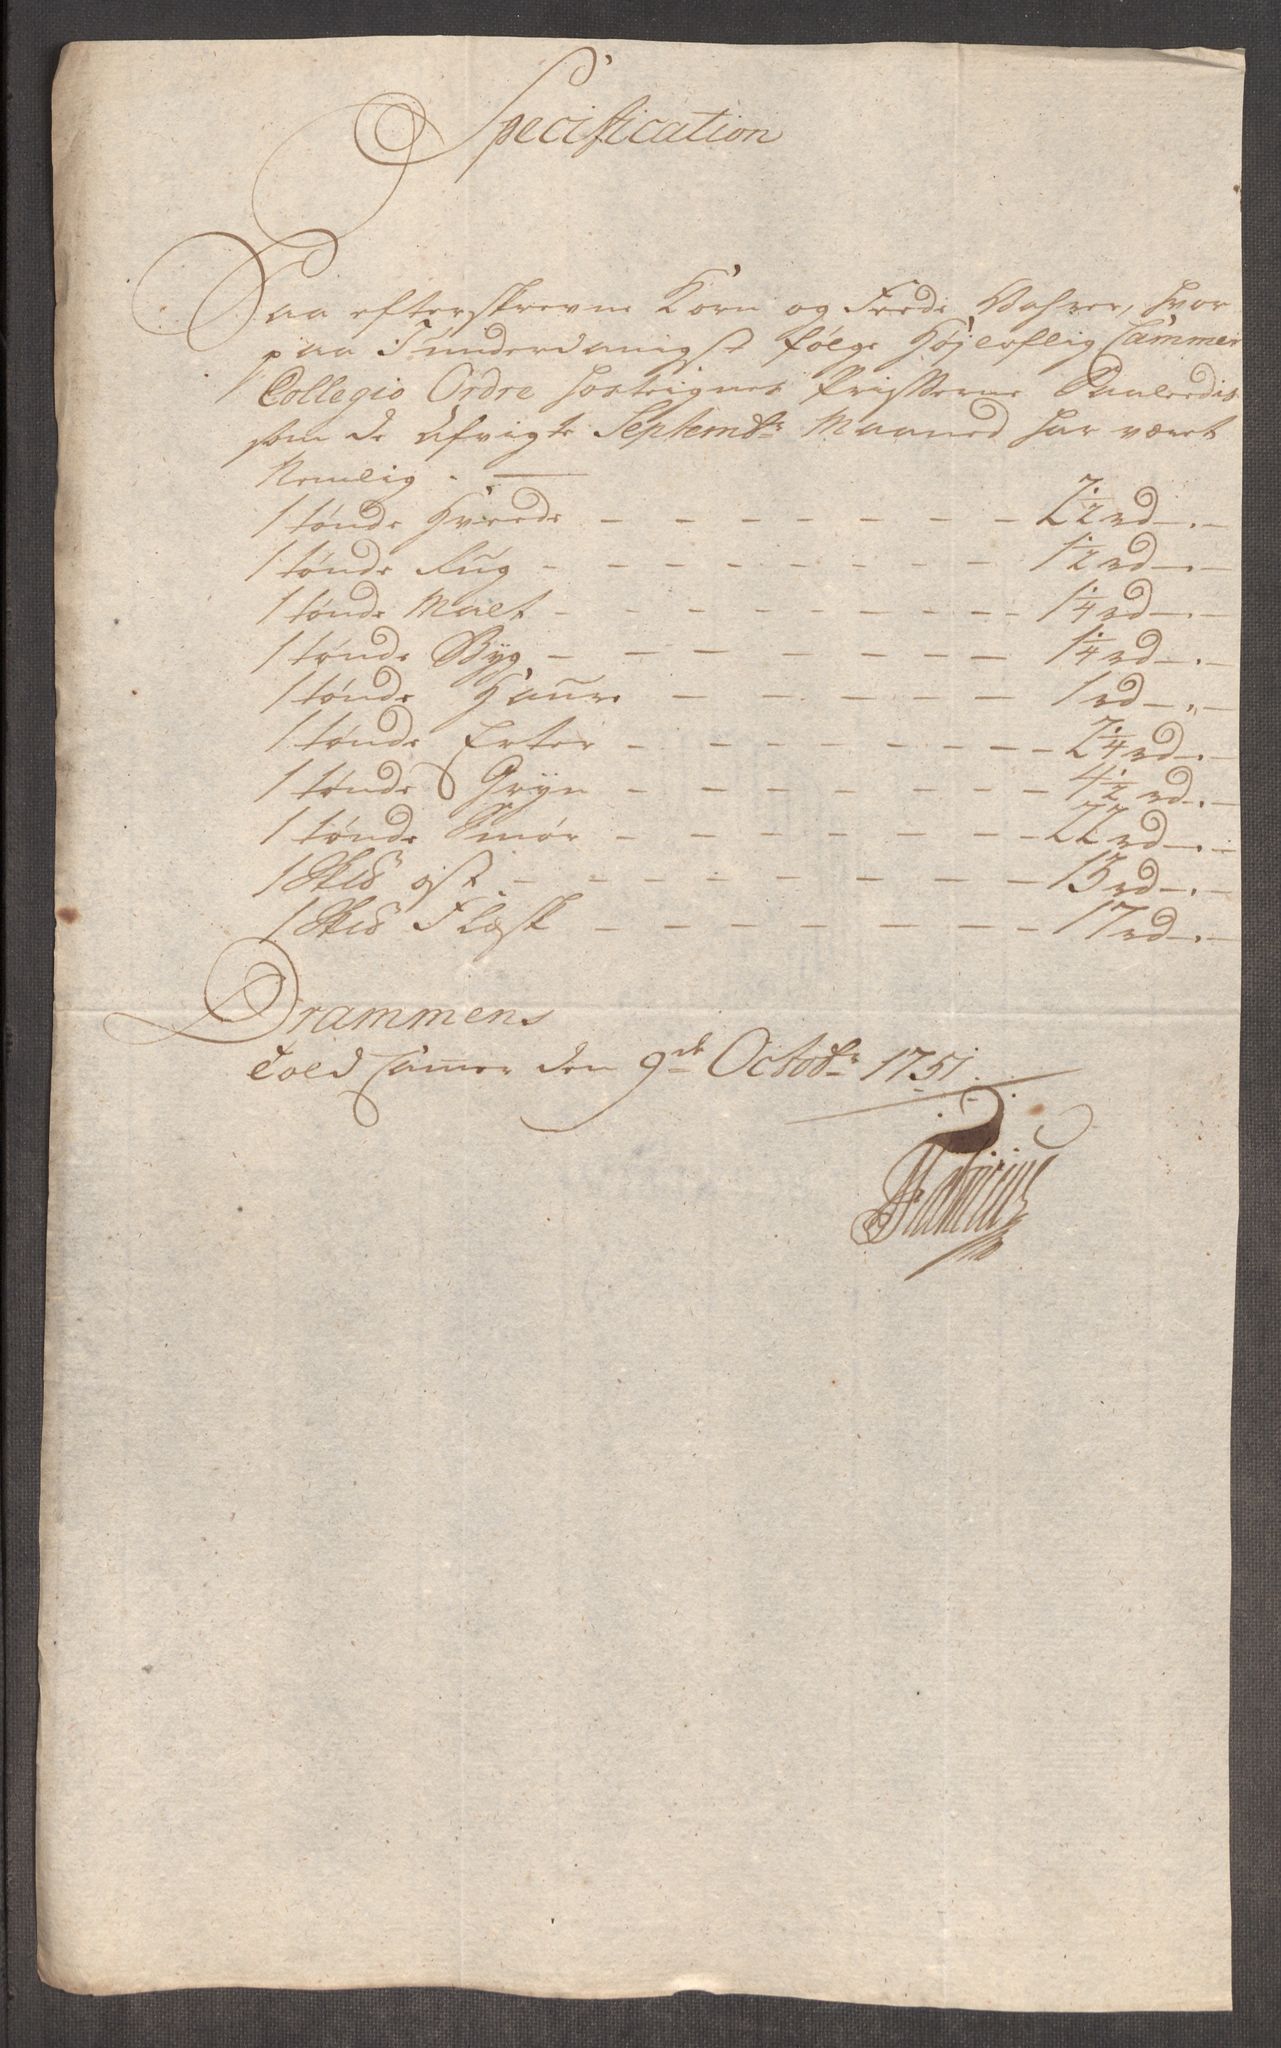 Specification
Paa efterskrevne Korn og Feede Vahrer, hvor
paa I underdanigst følge Højloflig Cammer
Collegio Ordre hostegnet Prisserne Saaledis
som de udi afvigte Septembr Maaned har været
Nemlig.
1 tønde Hveede - - - - - - - 2 1/2 rd - . -
1 tønde Rug - - - - - - - 1 1/2 rd - . -
1 tønde Malt - - - - - - - 1 1/4 rd - . -
1 tønde Byg - - - - - - - 1 1/4 rd - . -
1 tønde Haure - - - - - 1 rd - . -
1 tønde Erter - - - - - - 2 1/4 rd - . -
1 tønde Gryn - - - - - - 4 1/2 rd - . -
1 tønde Smør - - - - - - 22 rd - . -
1 Sk℔ ost - - - - - - - 13 rd - . -
1 Sk℔ Flæsk - - - - - - 17 rd - . -
Drammens
Told Camer den 9de Octobr 1751